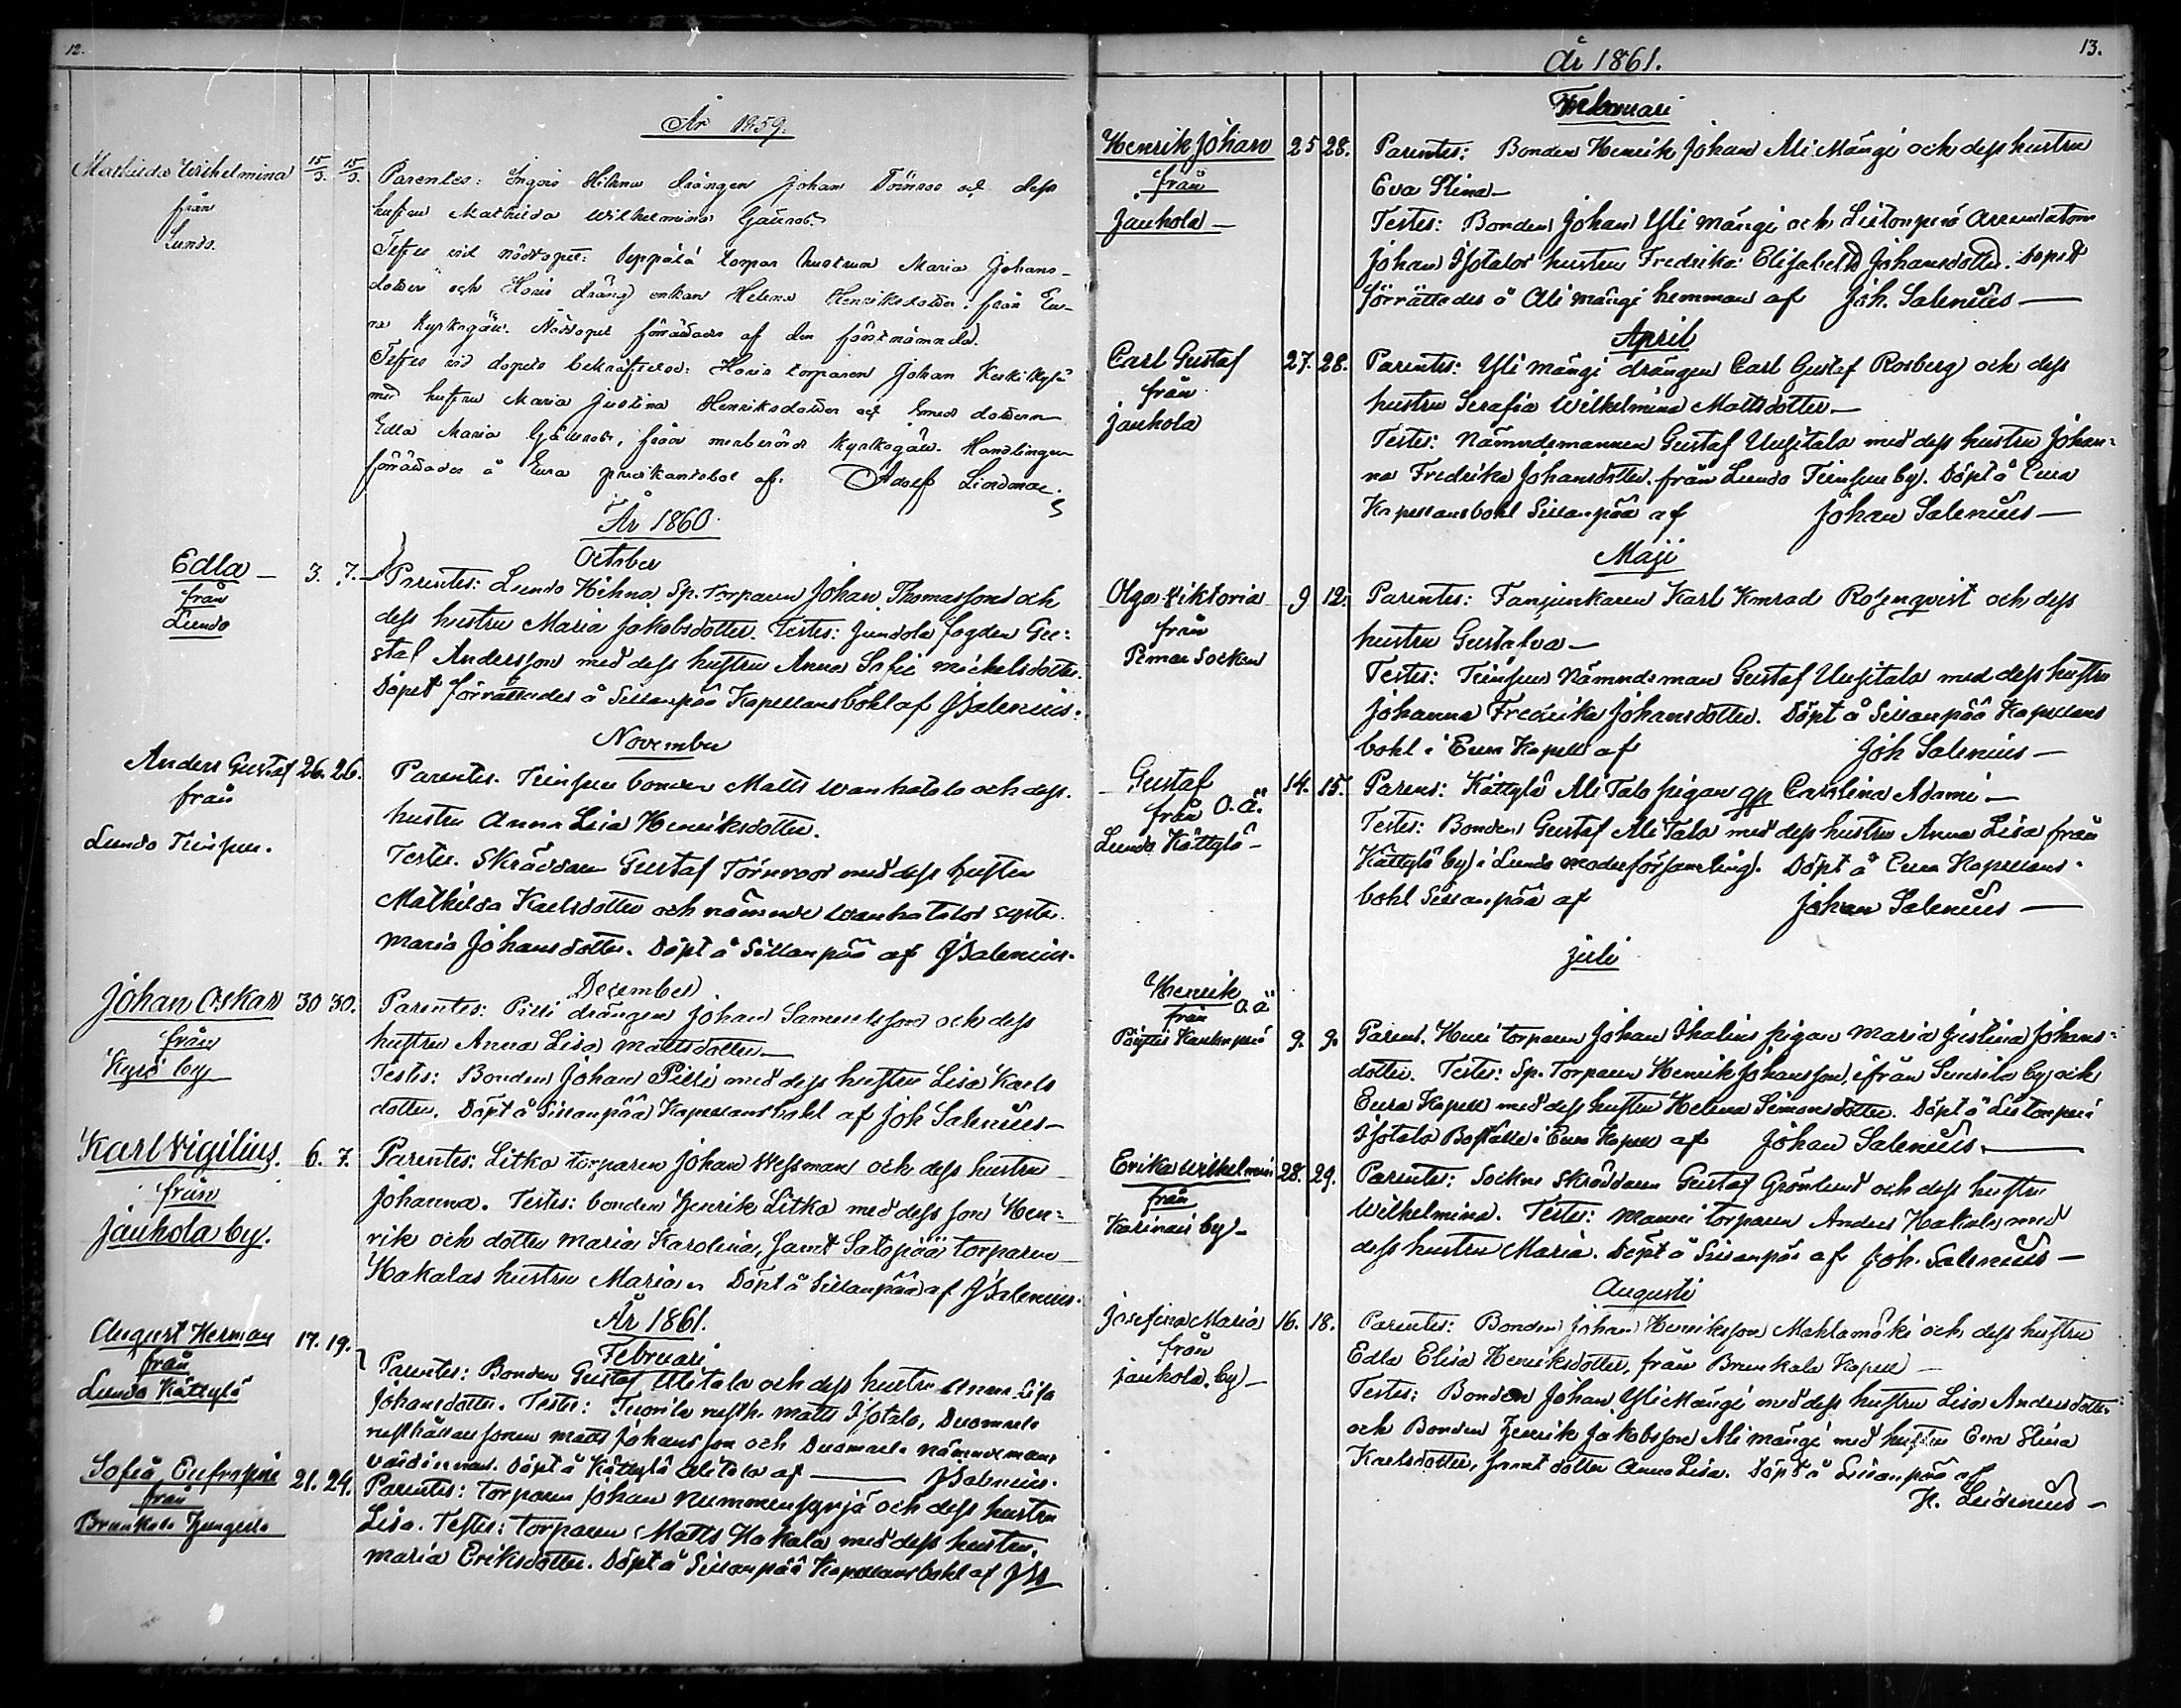 12.
År 1859.
Mathilda Wilhelmina 15/3. 15/3. Parentes: Ingois Hihna drängen Johan Törnroos och dess
från hustru Mathilda Wilhelmina
Lundo.
Testes vid nöddopet: Seppälä torpar hustrun Maria Johans-
dotter och Horis dräng enkan Helena Henriksdotter från Eu-
ra Kyrkogård. Nöddopet förrättades af den förstnämnda.
Testes vid dopets bekräftelse: Horis torparen Johan Keskikylä
med hustru Maria Justina Henriksdotter och
Edla Maria från merberörde Kyrkogård. Handlingen
förrättades å Eura af: Adolf Lindman.
År 1860.
October
Edla — 3. 7. Parentes: Lundo Hihna Sp. Torparen Johan Thomasson och
från dess hustru Maria Jakobsdotter. Testes: Jundola fogden Gu-
Lundo staf Andersson med dess hustru Anna Sofie Mickelsdotter.
Döpet förrättades å Sillanpää Kapellansbohl af JSalenius.
November
Anders Gustaf 26. 26. Parentes. Teinsuu bonden Matts Wanhatalo och dess
från hustru Anna Lisa Henriksdotter.
Lundo Teinsuu. Testes. Skräddaren Gustaf Törnroos med dess hustru
Mathilda Karlsdotter och nämnde Wanhatalos
Maria Johansdotter. Döpt å Sillanpää af JSalenius.
December
Johan Oskar 30 30. Parentes: Pilli drängen Johan Samuelsson och dess
från hustru Anna Lisa Mattsdotter—
Kyrö by Testes: Bonden Johan Pilli med dess hustru Lisa Karls
dotter. Döpt å Sillanpää Kapellansbohl af Joh Salenius—
Karl Vigilius. 6. 7. Parentes: Litko torparen Johan Wessman och dess hustru
från Johanna. Testes: bonden Henrik Litko med dess son Hen-
Jauhola by. rik och dotter Maria Karolina, samt Satopää torparen
Hakalas hustru Maria. Döpt å Sillanpää af JSalenius.
År 1861.
Februari
August Herman 17. 19. Parentes: Bonden Gustaf Alitalo och dess hustru Anna Lisa
från Johansdotter. Testes: Tuorila rusth. Matts Isotalo,
Lundo Kättylä rusthållaresonen Matts Johansson och nämndeman
Döpt å Kättylä Alitalo af — JSalenius.
Sofia Eufrosine 21. 24. Parentes: torparen Johan Nummensyrjä och dess hustru
från Lisa. Testes: torparen Matts Hakala med dess hustru
Brunkala Maria Eriksdotter. Döpt å Sillanpää Kapellansbohl af JS
13.
År 1861.
Februari
Henrik Johan 25 28. Parentes: Bonden Henrik Johan Ali Mängi och dess hustru
från Eva Stina—
Jauhola— Testes: Bonden Johan Yli Mängi och Liitonperä Arrendatorn
Johan Isotalos hustru Fredrika Elisabeth Johansdotter. Dopet
förrättades å Ali mängi hemman af Joh. Salenius—
April
Carl Gustaf 27. 28. Parentes: Yli Mängi drängen Carl Gustaf Rosberg och dess
från hustru Serafia Wilhelmina Mattsdotter—
Jauhola Testes: Nämndemannen Gustaf Uusitalo med dess hustru Johan-
na Fredrika Johansdotter, från Lundo Teinsuu by. Döpt å Eura
Kapellansbohl Sillanpää af Johan Salenius—
Maji
Olga Viktoria 9 12. Parentes: Fanjunkaren Karl Konrad Rosenqvist och dess
från hustru Gustafva—
Pemar Socken Testes: Teinsuu Nämndeman Gustaf Uusitalo med dess hustru
Johanna Fredrika Johansdotter. Döpt å Sillanpää Kapellans
bohl i Eura Kapell af Joh Salenius—
Gustaf 14. 15. Parens: Kättylä Ali Talo pigan Carolina Adami—
från O.Ä. Testes: Bonden Gustaf Ali Talo med dess hustru Anna Lisa från
Lundo Kättylä— Kättylä by i Lundo moderförsamling. Döpt å Eura Kapellans-
bohl Sillanpää af Johan Salenius—
Juli
Henrik
från O.Ä
Pöytis 9. 9. Parens. torparen Johan pigan Maria Justina Johans-
dotter. Testes: Sp. Torparen Henrik Johansson, ifrån by och
Eura Kapell med dess hustru Helena Simonsdotter. Döpt å Liitonperä
Isotalo Boställe i Eura Kapell af Johan Salenius.—
Erika Wilhelmina 28. 29. Parentes: Sockne Skräddaren Gustaf Grönlund och dess hustru
från Wilhelmina. Testes: torparen Anders Hakala med
Karinais by— dess hustru Maria. Döpt å Sillanpää af Joh. Salenius—
Augusti
Josefina Maria 16. 18. Parentes: Bonden Johan Henriksson Mahlamäki och dess hustru
från Edla Elisa Henriksdotter, från Brunkala Kapell—
Jauhola by— Testes: Bonden Johan Yli Mängi med dess hustru Lisa Andersdotter
och Bonden Henrik Jakobsson Ali mängi med hustru Eva Stina
Karlsdotter, samt dotter Anna Lisa. Döpt å Sillanpää af
K. Lidenius—